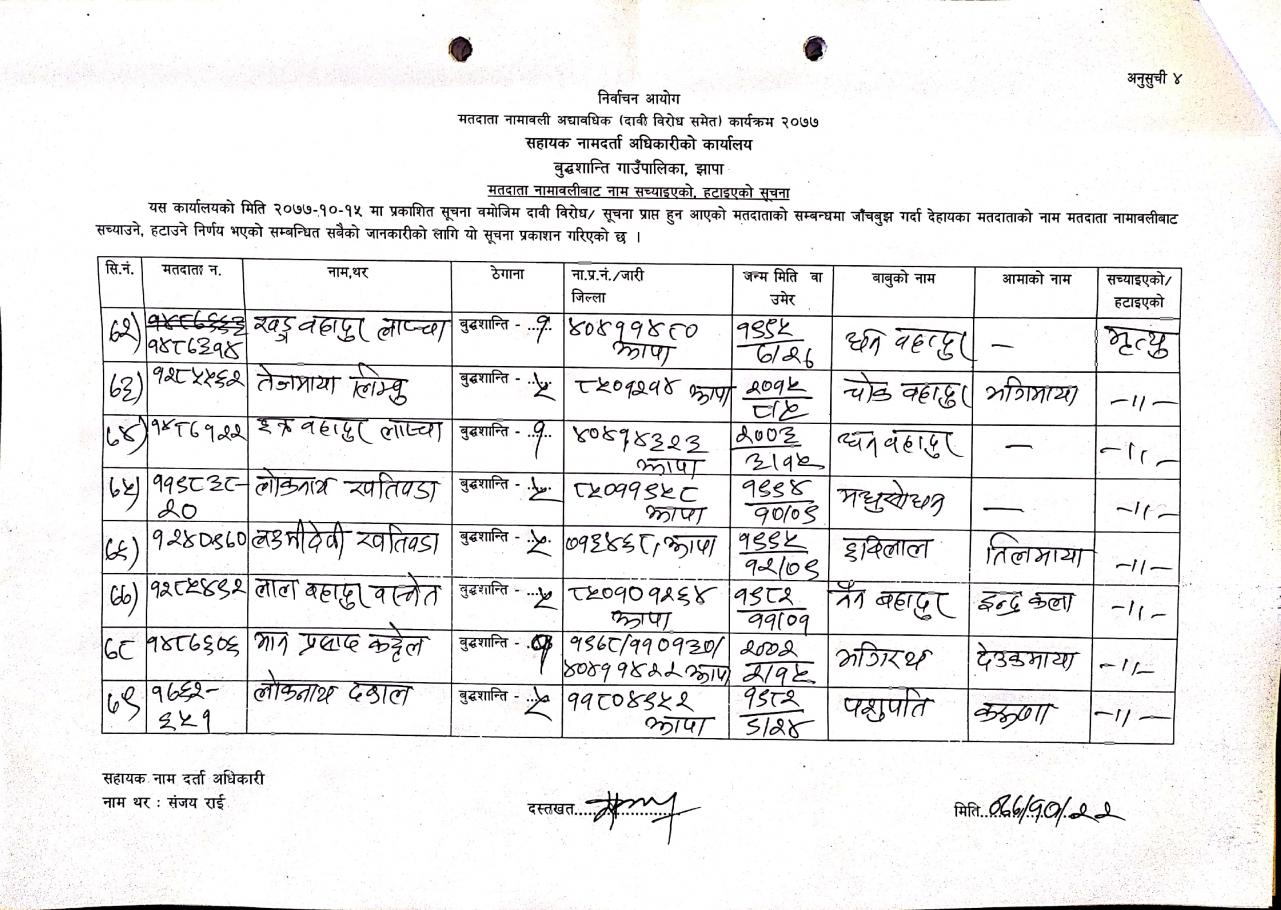 अनुसुची ४
निर्वाचन आयोग
मतदाता नामावली अद्यावधिक (दावी विरोध समेत) कार्यक्रम २०७७
सहायक नामदर्ता अधिकारीको कार्यालय
बुद्धशान्ति गाउँपालिका, झापा
मतदाता नामावलीबाट नाम सच्याइएको, हटाइएको सूचना
यस कार्यालयको मिति २०७७-१०-१५ मा प्रकाशित सूचना वमोजिम दावी विरोध/ सूचना प्राप्त हुन आएको मतदाताको सम्बन्धमा जाँचबुझ गर्दा देहायका मतदाताको नाम मतदाता नामावलीबाट
सच्याउने, हटाउने निर्णय भएको सम्बन्धित सवैको जानकारीको लागि यो सूचना प्रकाशन गरिएको छ ।
सि.नं. मतदाता न. नाम,थर ठेगाना ना.प्र.नं./जारी जिल्ला जन्म मिति वा उमेर बाबुको नाम आमाको नाम सच्याइएको/ हटाइएको
७२) १४८७६६३ १४८७३१४ खड्ग वहादुर लाप्चा बुद्धशान्ति - १ ४०४११४८० झापा १९९५ ७/२८ धन वहादुर — मृत्यु
७३) १२८५५६२ तेजमाया लिम्बु बुद्धशान्ति - ५ ८५०१२१४ झापा २०१५ ८/५ चोक वहादुर भगिमाया —॥—
७४) १४८७१२२ इन्द्र वहादुर लाप्चा बुद्धशान्ति - १ ४०४१४३२३ झापा २००३ ३/१५ धन वहादुर — —॥—
७५) ११९८३८-२० लोकनाथ खतिवडा बुद्धशान्ति - ५ ८५०११९५८ झापा १९९४ १०/०९ मधुसोधन — —॥—
७६) १२४०९७० लक्ष्मीदेवी खतिवडा बुद्धशान्ति - ५ ७१६४६८, झापा १९९५ १२/०९ हविलाल तिलमाया —॥—
७७) १२८५४९२ लाल बहादुर वस्नेत बुद्धशान्ति - ५ ८५०१०१२६४ झापा १९८२ ११/०१ नैन बहादुर इन्द्र कला —॥—
७८ १४८७६०६ भान प्रसाद कट्टेल बुद्धशान्ति - १ १९७८/११०१३०/ ४०४११४२२ झापा २००२ २/१५ भगिरथ देउकमाया —॥—
७९ १७६२-६५१ लोकनाथ दकाल बुद्धशान्ति - ५ ११८०४९५२ झापा १९८२ ९/२४ पशुपति करूणा —॥—
सहायक नाम दर्ता अधिकारी
नाम थर : संजय राई दस्तखत.................... मिति..०७७/१०/२२